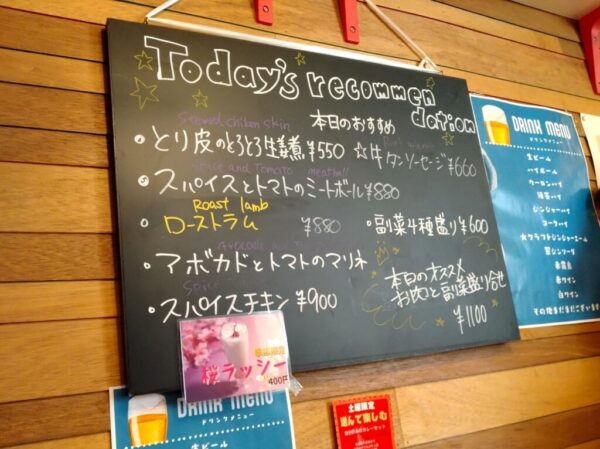 Today's recommen
dation
本日のおすすめ
Stewed chiken skin
・とり皮のとろとろ生姜煮 ¥550
☆牛タンソーセージ ¥660
Spice and Tomato meatball
・スパイスとトマトのミートボール ¥880
Roast lamb
・ローストラム ¥880
・副菜4種盛り ¥600
・アボカドとトマトのマリネ
Spice
・スパイスチキン ¥900
本日のオススメ
お肉と副菜盛り合せ
¥1100
桜ラッシー
400円
DRINK MENU
ドリンクメニュー
生ビール
ハイボール
ウーロンハイ
緑茶ハイ
ジンジャーハイ
コークハイ
★クラフトジンジャーエール
赤ワイン
白ワイン
その他まだまだございます
DRINK MENU
ドリンクメニュー
生ビール
土曜限定
選んで楽しむ